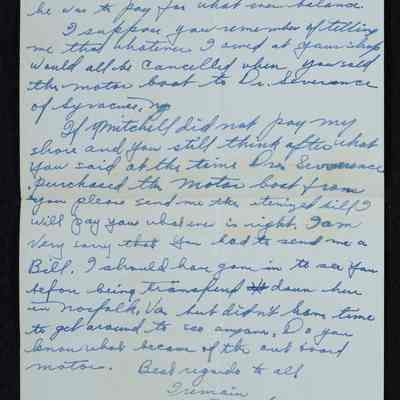 he was to pay for what ever balance
I suppose you remember of telling
me that whatever I owed at your shop
would all be cancelled when you sold
the motor boat to Dr. Severance
of Syracuse, Ny
If Mitchell did not pay my
share and you still think after what
you said at the time Dr. Severance
purchased the motor boat from
you please send me the itemized bill I
will pay you what ever is right. I am
very sorry that you had to send me a
Bill. I should have gone in to see you
before being transferred down here
in Norfolk, Va but didn't have time
to get around to see anyone. Do you
know what became of the out board
motor. Best regards to all
I remain